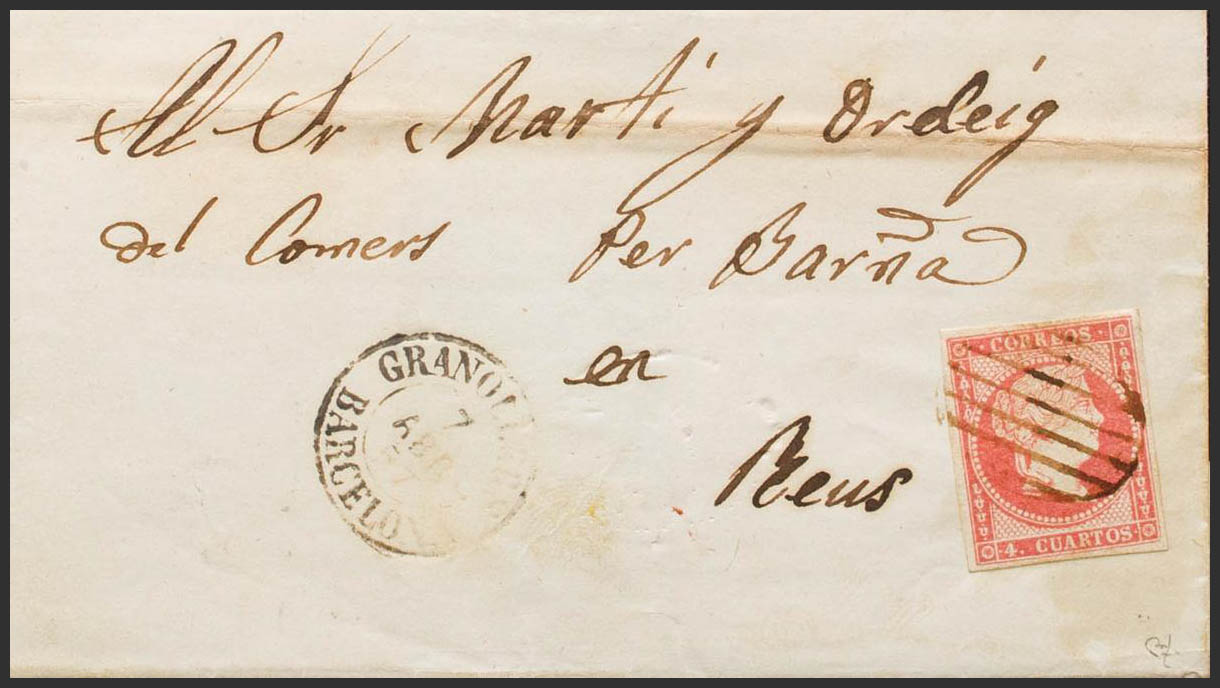 Al Sr Marti y Ordeig
del Comers Per Barña
en
Reus
GRANOLLERS
7
BARCELO
CORREOS
4. CUARTOS